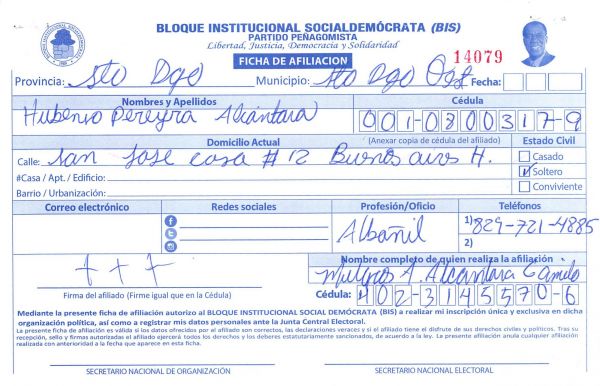 BLOQUE INSTITUCIONAL SOCIALDEMÓCRATA (BIS)
PARTIDO PEÑAGOMISTA
Libertad, Justicia, Democracia y Solidaridad
FICHA DE AFILIACION
14079
Provincia: Sto Dgo Municipio: Sto Dgo Oest Fecha:
Nombres y Apellidos Cédula
Pereyra Alcántara 001-0800317-9
Domicilio Actual (Anexar copia de cédula del afiliado) Estado Civil
Calle: San Jose casa # 12 Buenos aires H. Casado
#Casa / Apt. / Edificio: Soltero
Barrio / Urbanización: Conviviente
Correo electrónico Redes sociales Profesión/Oficio Teléfonos
Albañil 1) 829-721-4885
2)
+ + +
Nombre completo de quien realiza la afiliación
A. Alcantara Camilo
Firma del afiliado (Firme igual que en la Cédula) Cédula: 402-3145570-6
Mediante la presente ficha de afiliación autorizo al BLOQUE INSTITUCIONAL SOCIAL DEMÓCRATA (BIS) a realizar mi inscripción única y exclusiva en dicha
organización política, así como a registrar mis datos personales ante la Junta Central Electoral.
La presente ficha de afiliación es válida si los datos ofrecidos por el afiliado son correctos, las declaraciones veraces y si el afiliado tiene el disfrute de sus derechos civiles y políticos. Tras su
recepción, sello y firmas autorizadas el afiliado ejercerá todos los derechos y los deberes estatutariamente sancionados, de acuerdo a la ley. La presente afiliación anula cualquier afiliación
realizada con anterioridad a la fecha que aparece en esta ficha.
SECRETARIO NACIONAL DE ORGANIZACIÓN SECRETARIO NACIONAL ELECTORAL